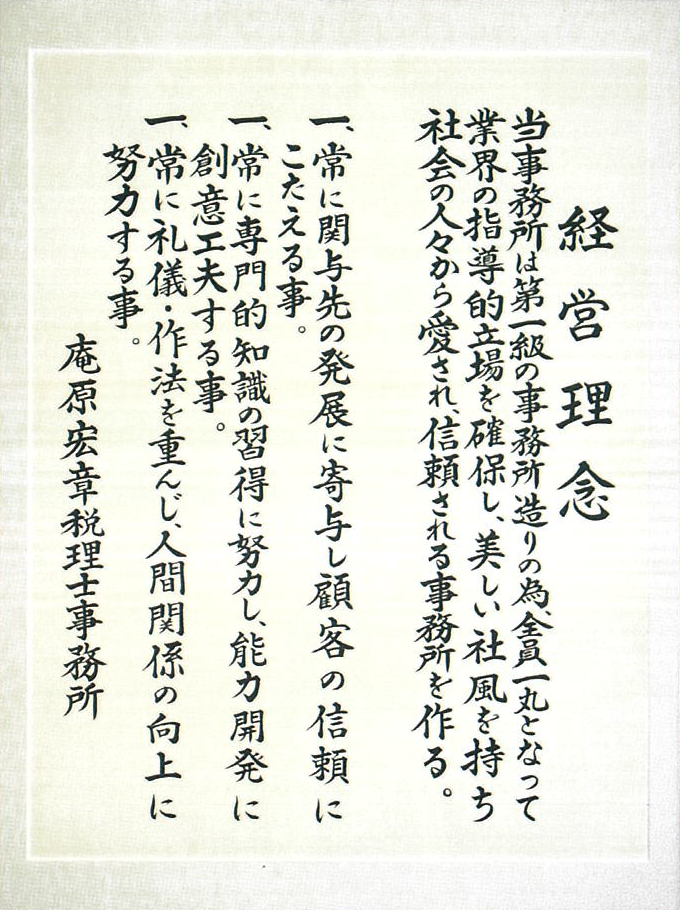 経営理念
当事務所は第一級の事務所造りの為、全員一丸となって
業界の指導的立場を確保し、美しい社風を持ち
社会の人々から愛され、信頼される事務所を作る。
一、常に関与先の発展に寄与し顧客の信頼に
こたえる事。
一、常に専門的知識の習得に努力し、能力開発に
創意工夫する事。
一、常に礼儀・作法を重んじ、人間関係の向上に
努力する事。
庵原宏章税理士事務所